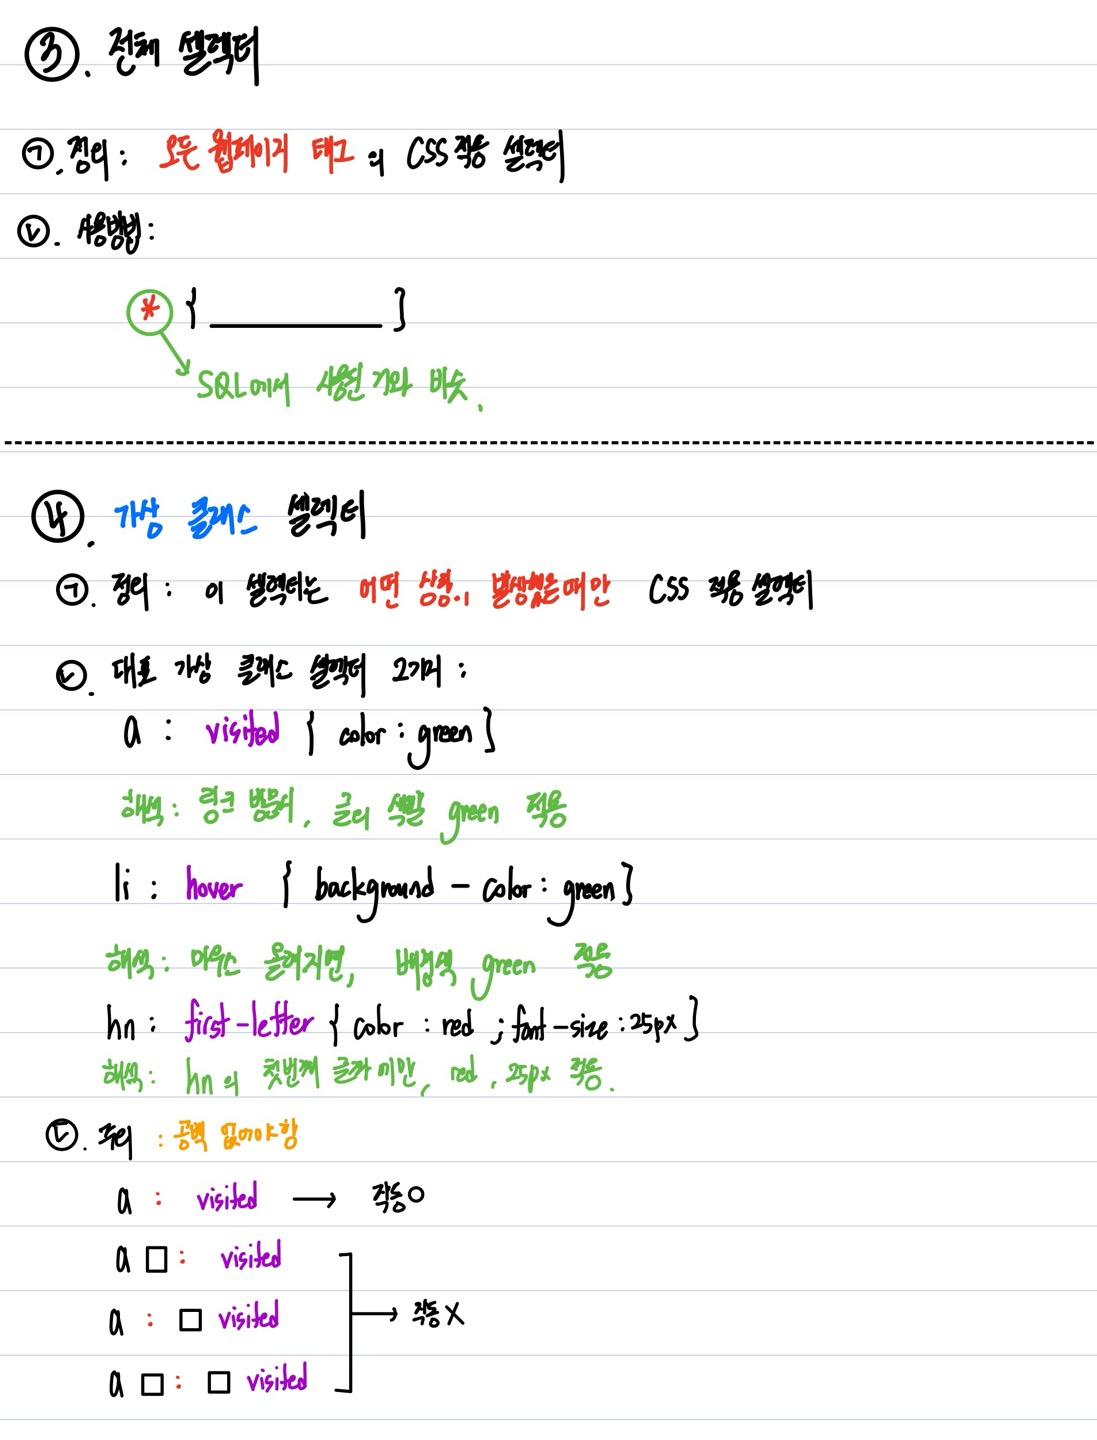 ③. 전체 셀렉터
㉠. 정의 : 모든 웹페이지 태그의 CSS 적용 셀렉터
㉡. 사용방법 :
* { }
SQL에서 사용된 거와 비슷.
④. 가상 클래스 셀렉터
㉠. 정의 : 이 셀렉터는 어떤 상황이 발생했을때만 CSS 적용 셀렉터
㉡. 대표 가상 클래스 셀렉터 2가지 :
a : visited { color : green }
해석 : 링크 방문시, 글씨 색깔 green 적용
li : hover { background - color : green }
해석 : 마우스 올려지면, 배경색 green 적용
hn : first-letter { color : red ; font-size : 25px }
해석 : hn의 첫번째 글자에만, red, 25px 적용.
㉢. 주의 : 공백 없어야 함
a : visited → 작동 O
a □ : visited
a : □ visited → 작동 X
a □ : □ visited